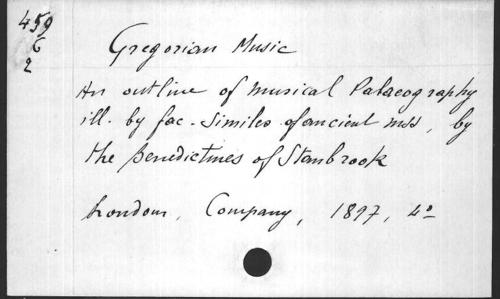 459
6
2
Gregorian Music
An outline of Musical Palaeography
ill. by fac-similes of ancient mss, by
the Benedictines of Stanbrook
London, Company, 1897, 4º